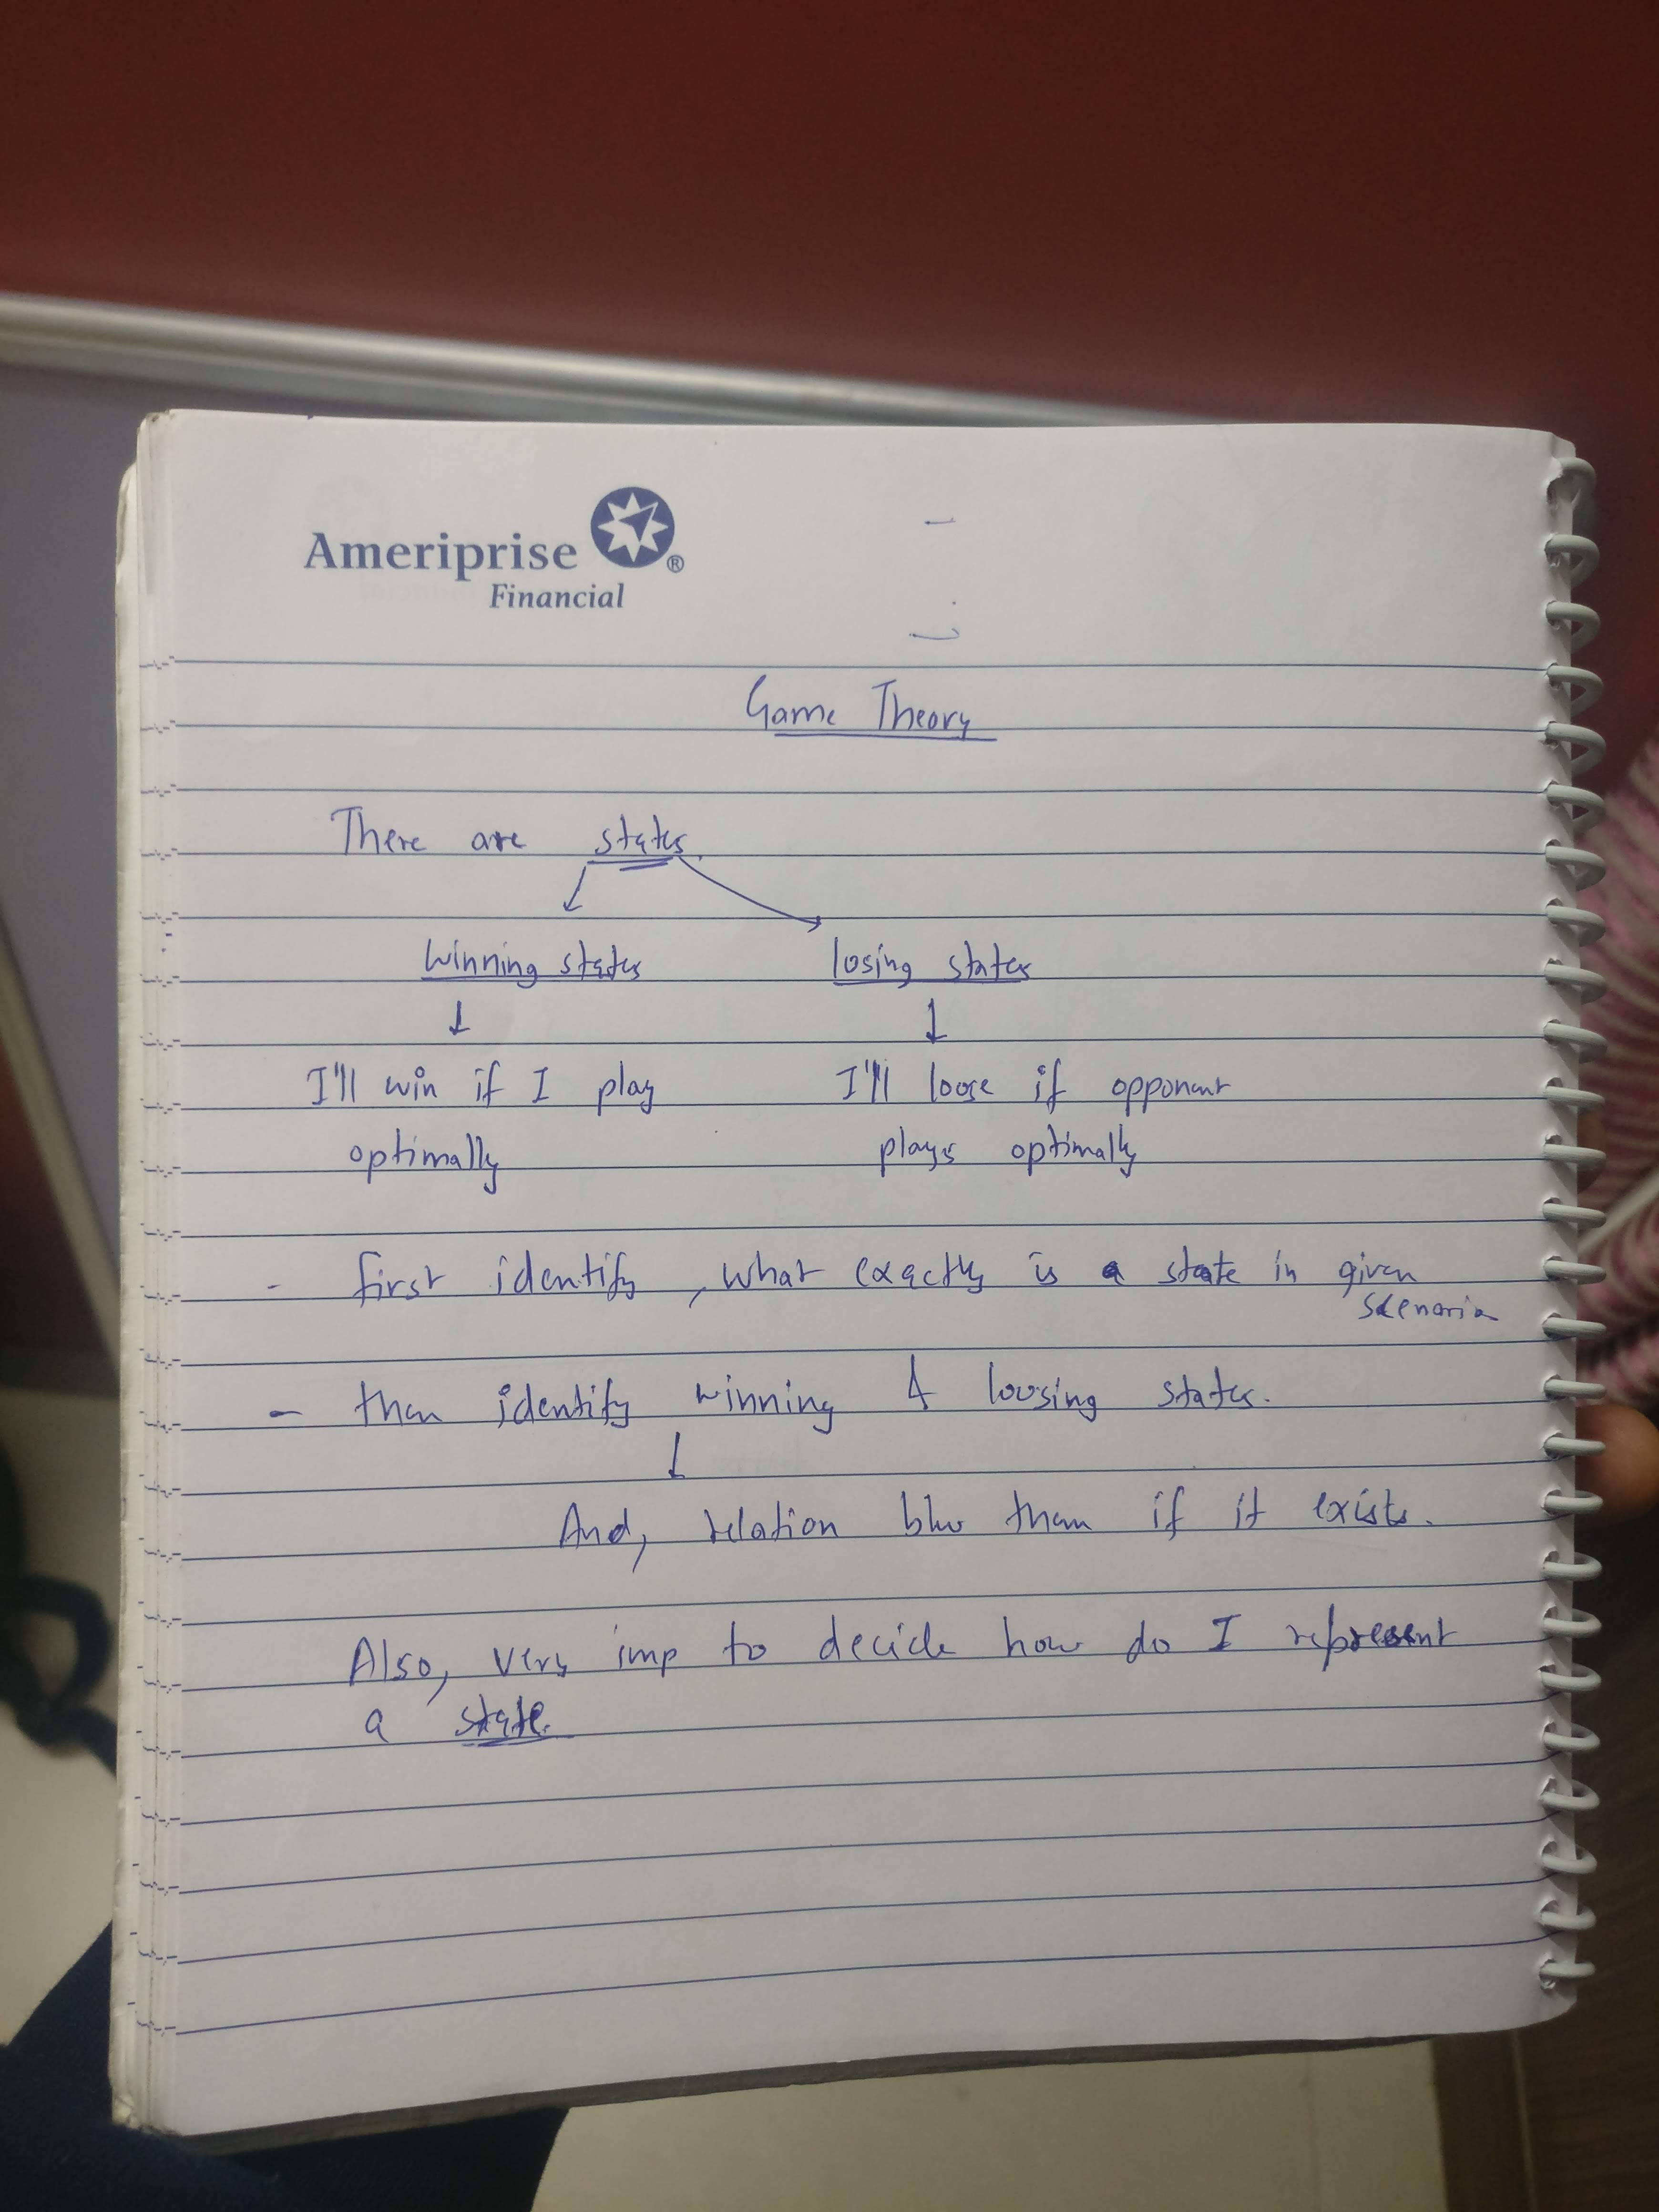 Ameriprise
Financial
Game Theory
There are states.
Winning states losing states
I'll win if I play I'll loose if opponent
optimally plays optimally
- first identify, what exactly is a state in given
scenario
- then identify winning & loosing states.
And, relation b/w them if it exists.
Also, very imp to decide how do I represent
a state.